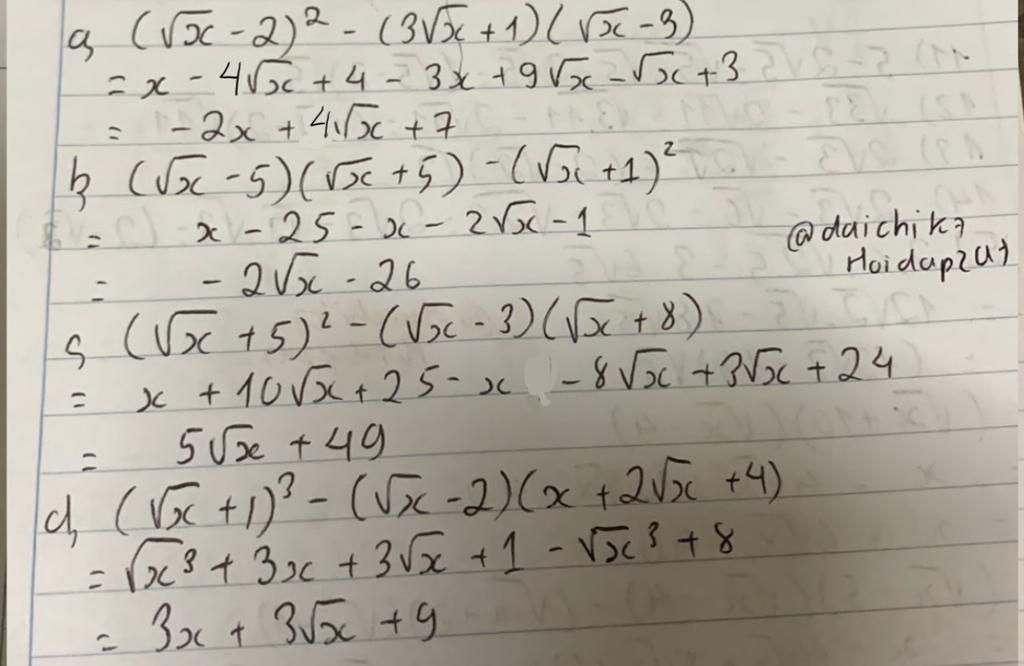 a, (√x - 2)² - (3√x + 1)(√x - 3)
= x - 4√x + 4 - 3x + 9√x - √x + 3
= - 2x + 4√x + 7
b, (√x - 5)(√x + 5) - (√x + 1)²
= x - 25 - x - 2√x - 1
@daichik7
= - 2√x - 26
Hoidap247
c, (√x + 5)² - (√x - 3)(√x + 8)
= x + 10√x + 25 - x - 8√x + 3√x + 24
= 5√x + 49
d, (√x + 1)³ - (√x - 2)(x + 2√x + 4)
= √x³ + 3x + 3√x + 1 - √x³ + 8
= 3x + 3√x + 9